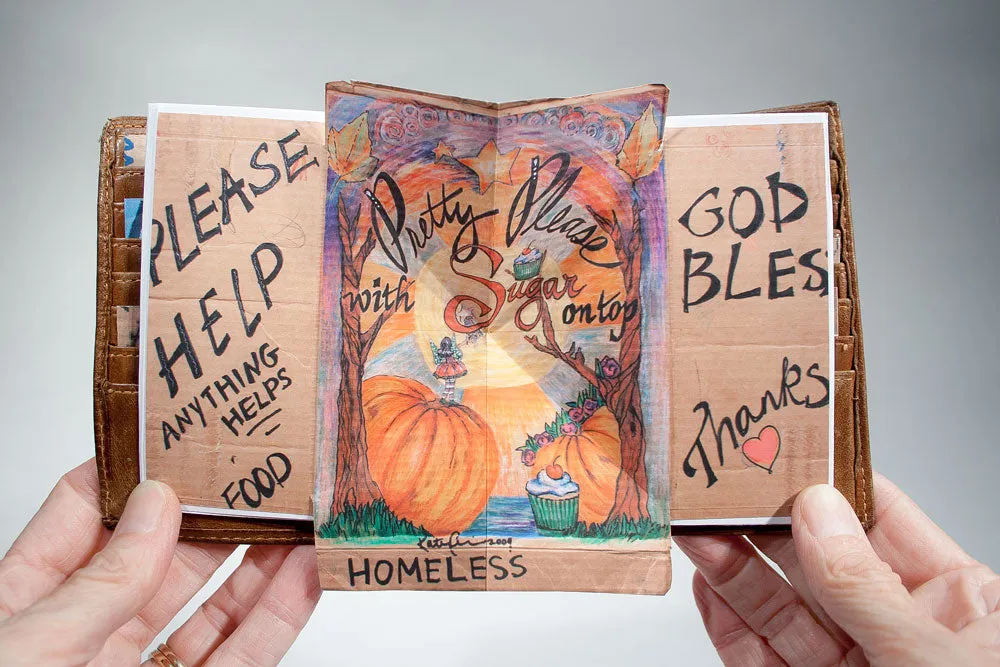 PLEASE
HELP
ANYTHING
HELPS
FOOD
Pretty Please
with Sugar on top
2009
HOMELESS
GOD
BLES
Thanks